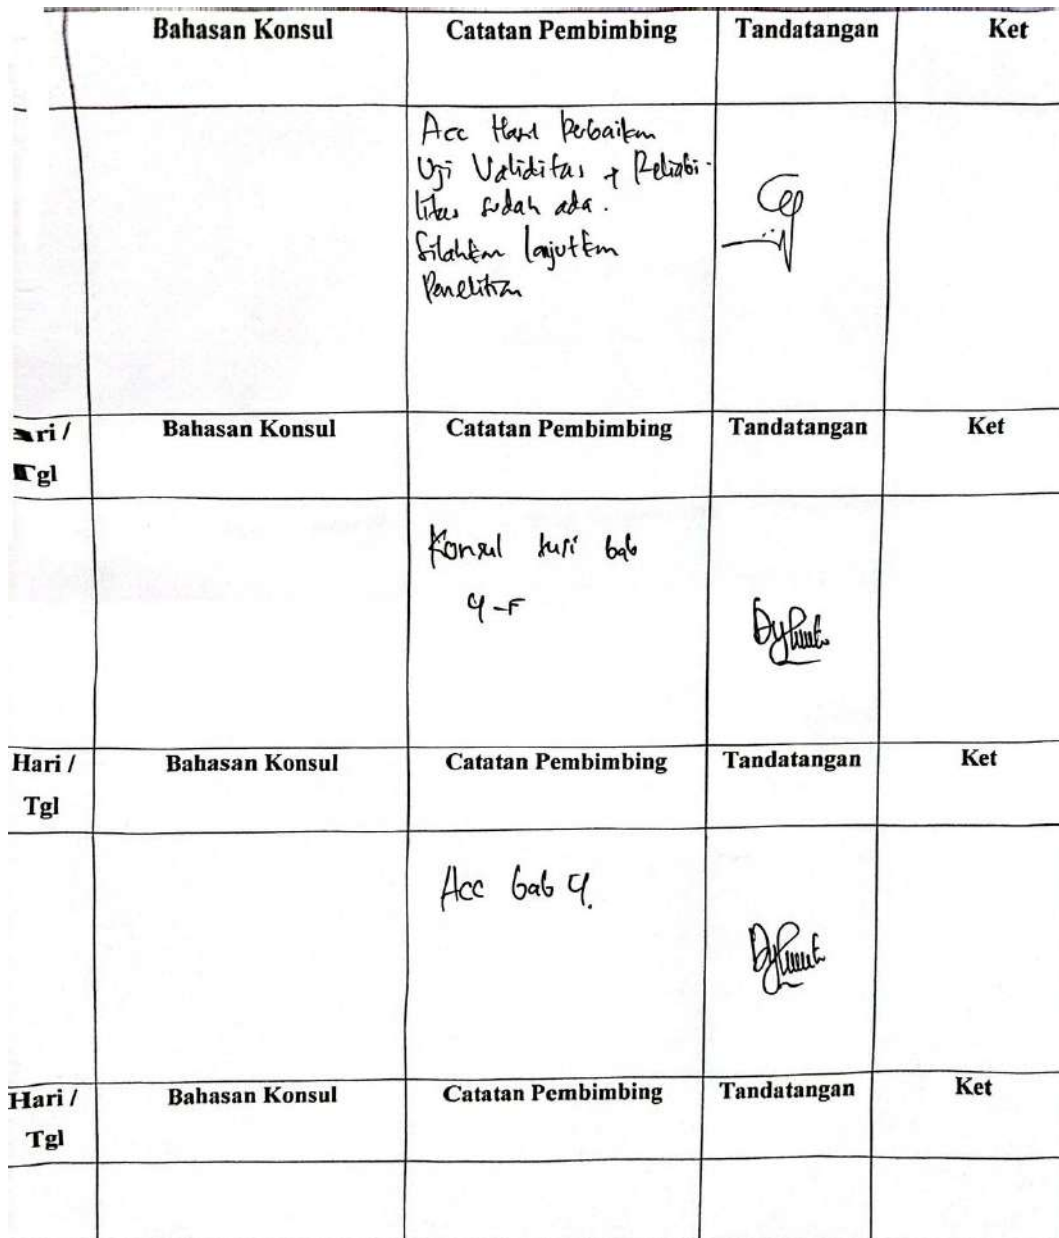 Bahasan Konsul Catatan Pembimbing Tandatangan Ket
Acc Hasil Perbaikan
Uji Validitas + Reliabi-
litas sudah ada.
Silahkan lanjutkan
Penelitian
ari / Bahasan Konsul Catatan Pembimbing Tandatangan Ket
Tgl
Konsul bab
4 -
Hari / Bahasan Konsul Catatan Pembimbing Tandatangan Ket
Tgl
Acc bab 4.
Hari / Bahasan Konsul Catatan Pembimbing Tandatangan Ket
Tgl